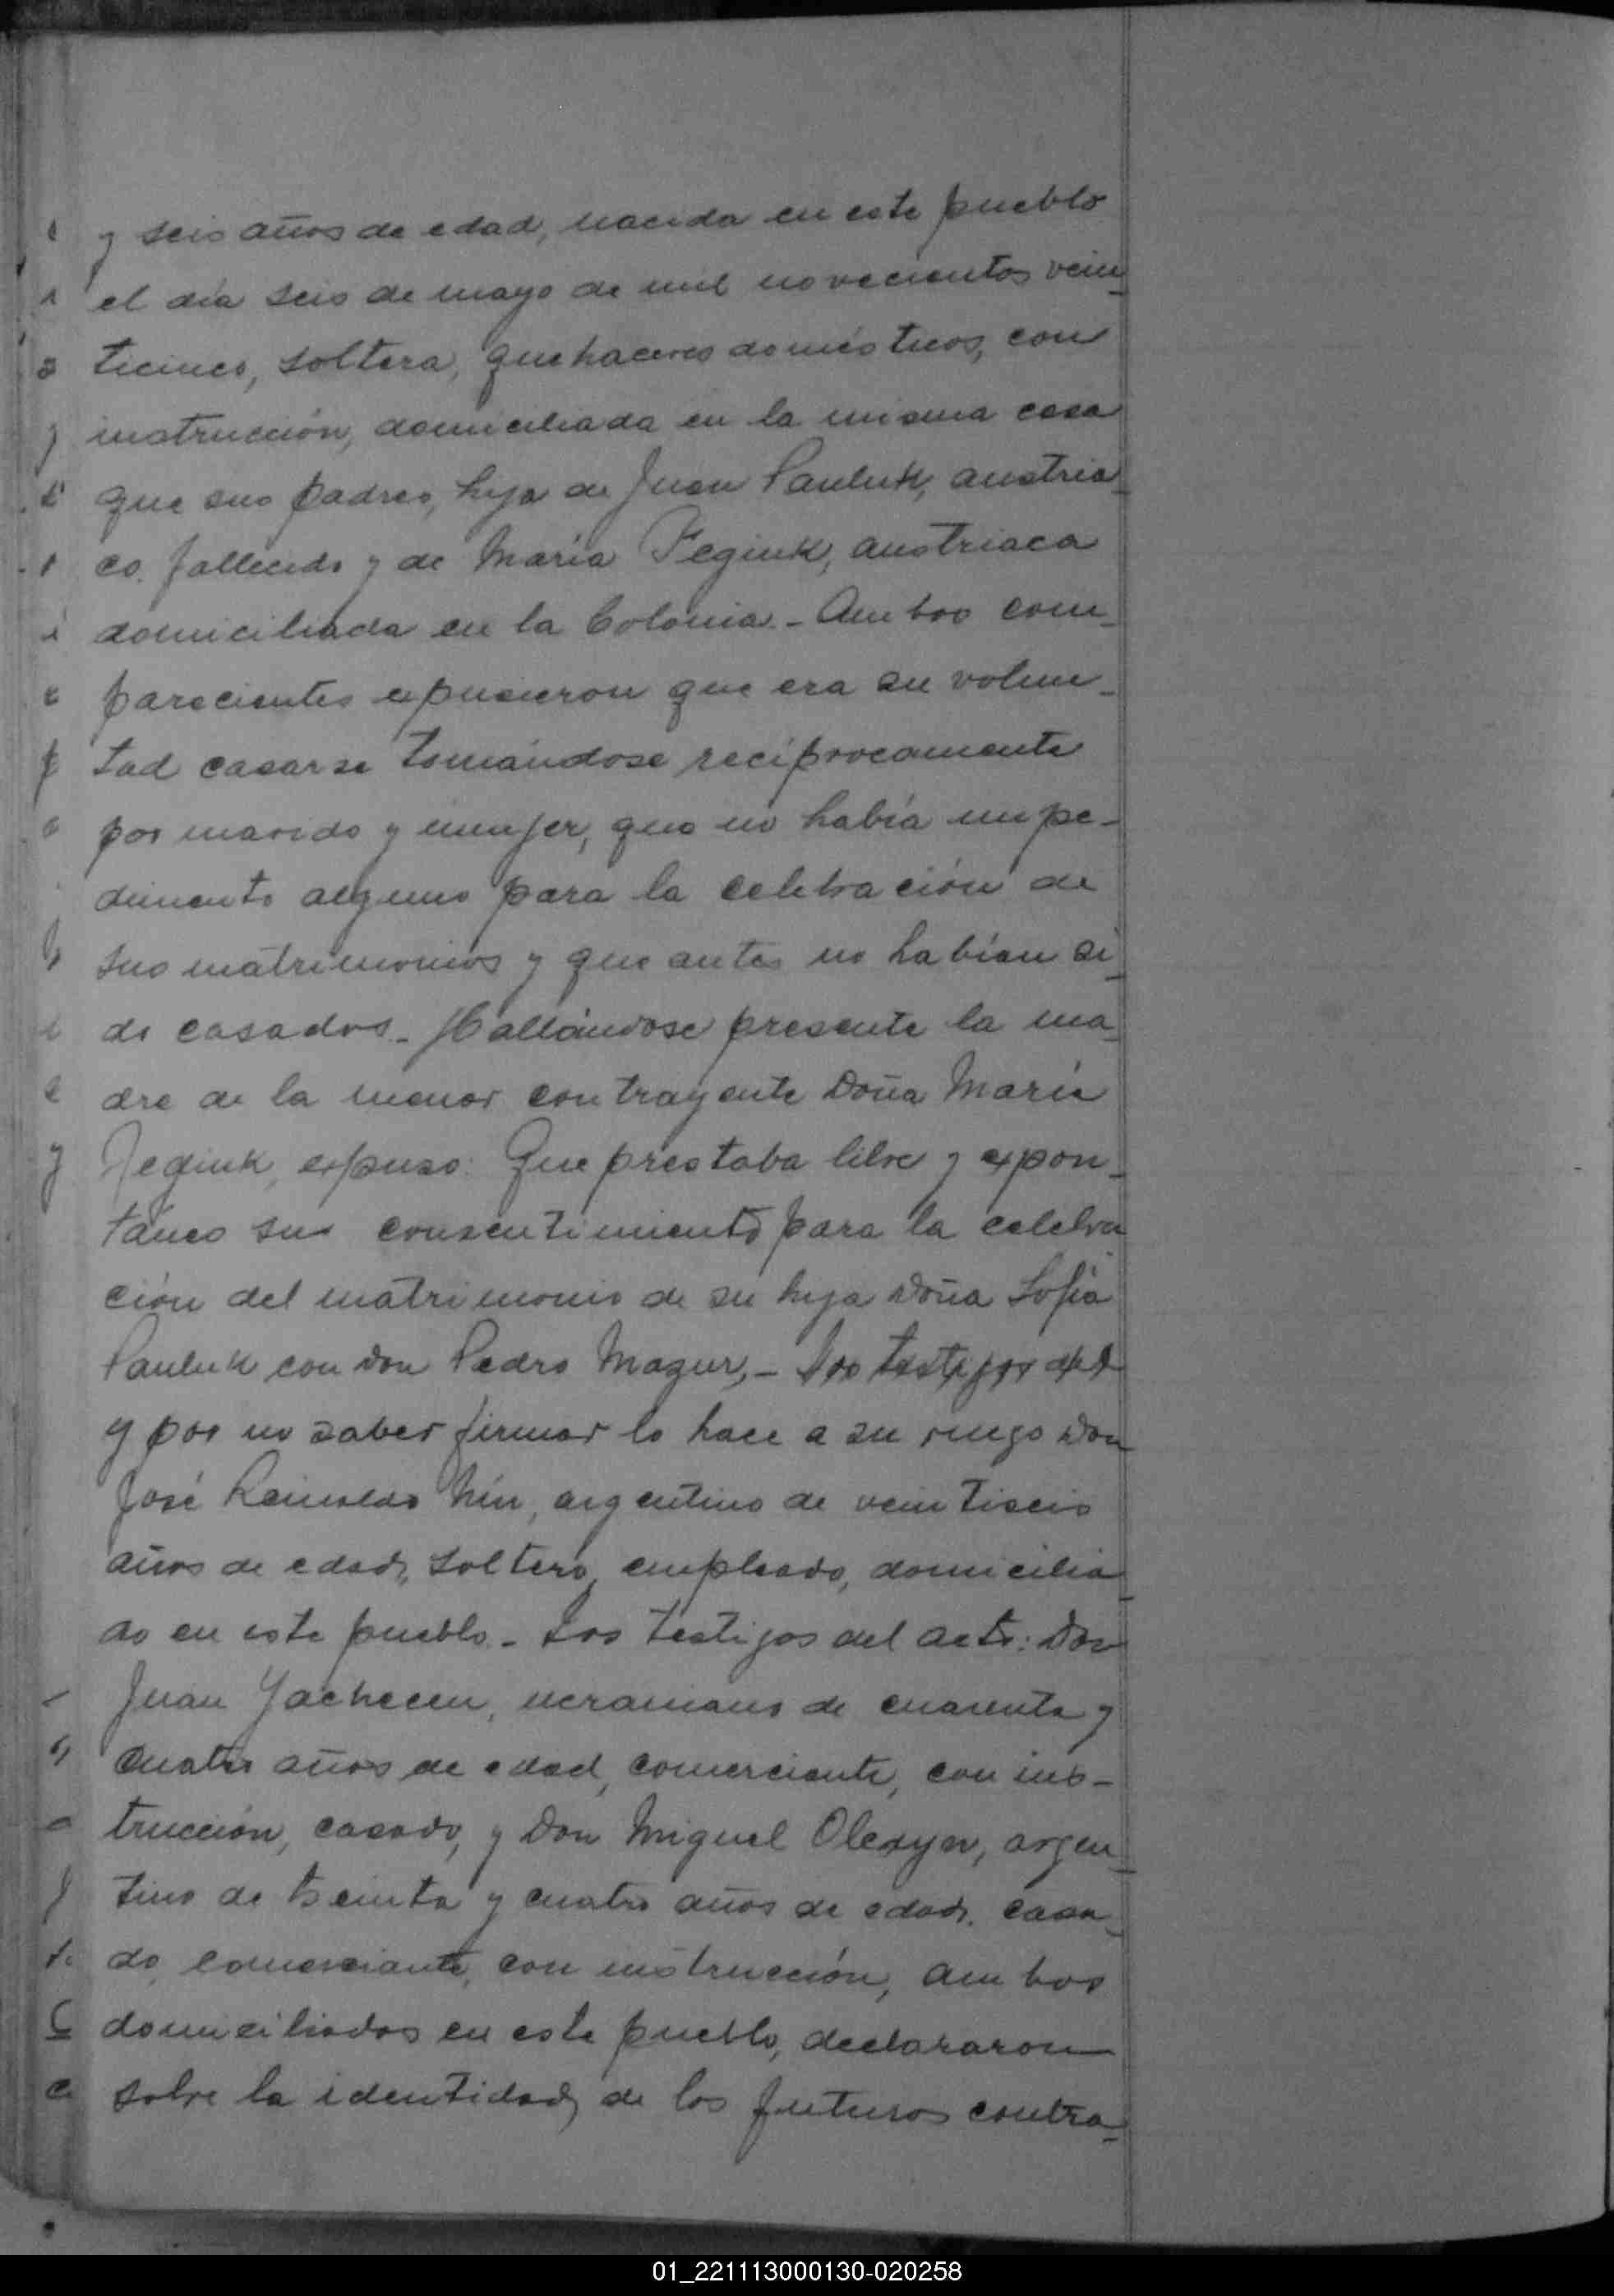 y seis años de edad, nacida en este pueblo
el día seis de mayo de mil novecientos vein_
ticinco, soltera, quehaceres domésticos, con
instrucción, domiciliada en la misma casa
que sus padres, hija de Juan Pauluk, austria_
co, fallecido y de María Fegiuk, austriaca
domiciliada en la Colonia._ Ambos com_
parecientes expusieron que era su volun_
tad casarse tomándose recíprocamente
por marido y mujer, que no había impe-
dimento alguno para la celebración de
sus matrimonios y que antes no habían si_
do casados._ Hallándose presente la ma_
dre de la menor contrayente Doña María
Fegiuk, expuso: Que prestaba libre y expon_
táneo su consentimiento para la celebra
ción del matrimonio de su hija Doña Sofía
Pauluk con Don Pedro Mazur,_ Los testigos del
y por no saber firmar lo hace a su ruego Don
José Reinoldo, argentino de veintiseis
años de edad, soltero, empleado, domicilia_
do en este pueblo._ Los testigos del acto: Don
Juan, ucraniano de cuarenta y
cuatro años de edad, comerciante, con ins-
trucción, casado, y Don Miguel, argen_
tino de treinta y cuatro años de edad, casa_
do, comerciante, con instrucción, ambos
domiciliados en este pueblo, declararon
sobre la identidad de los futuros contra_
01_221113000130-020258